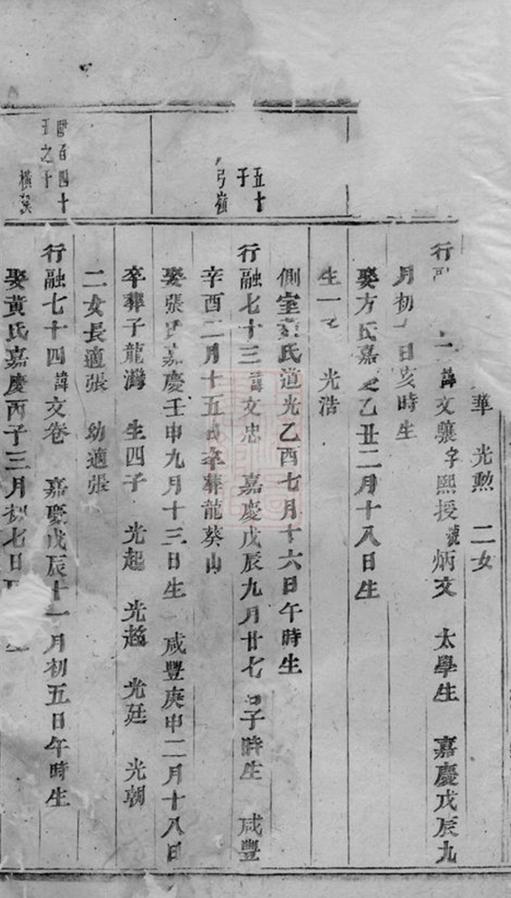 華 光勲 二女
行融 二諱文驤字熙授號炳文 太學生 嘉慶戊辰九
月初 日亥時生
娶方氏嘉慶乙丑二月十八日生
生一子 光浩
側室 氏道光乙酉七月十六日午時生
五十
子
弓嶺
行融七十三諱文忠 嘉慶戊辰九月廿七日子時生 咸豐
辛酉二月十五 卒葬龍葵山
娶張氏嘉慶壬申九月十三日生 咸豐庚申二月十八日
卒葬子龍灣 生四子 光起 光趨 光廷 光朝
二女長適張 幼適張
百四十
五之十
橫
行融七十四諱文卷 嘉慶戊辰十一月初五日午時生
娶黃氏嘉慶丙子三月初七日